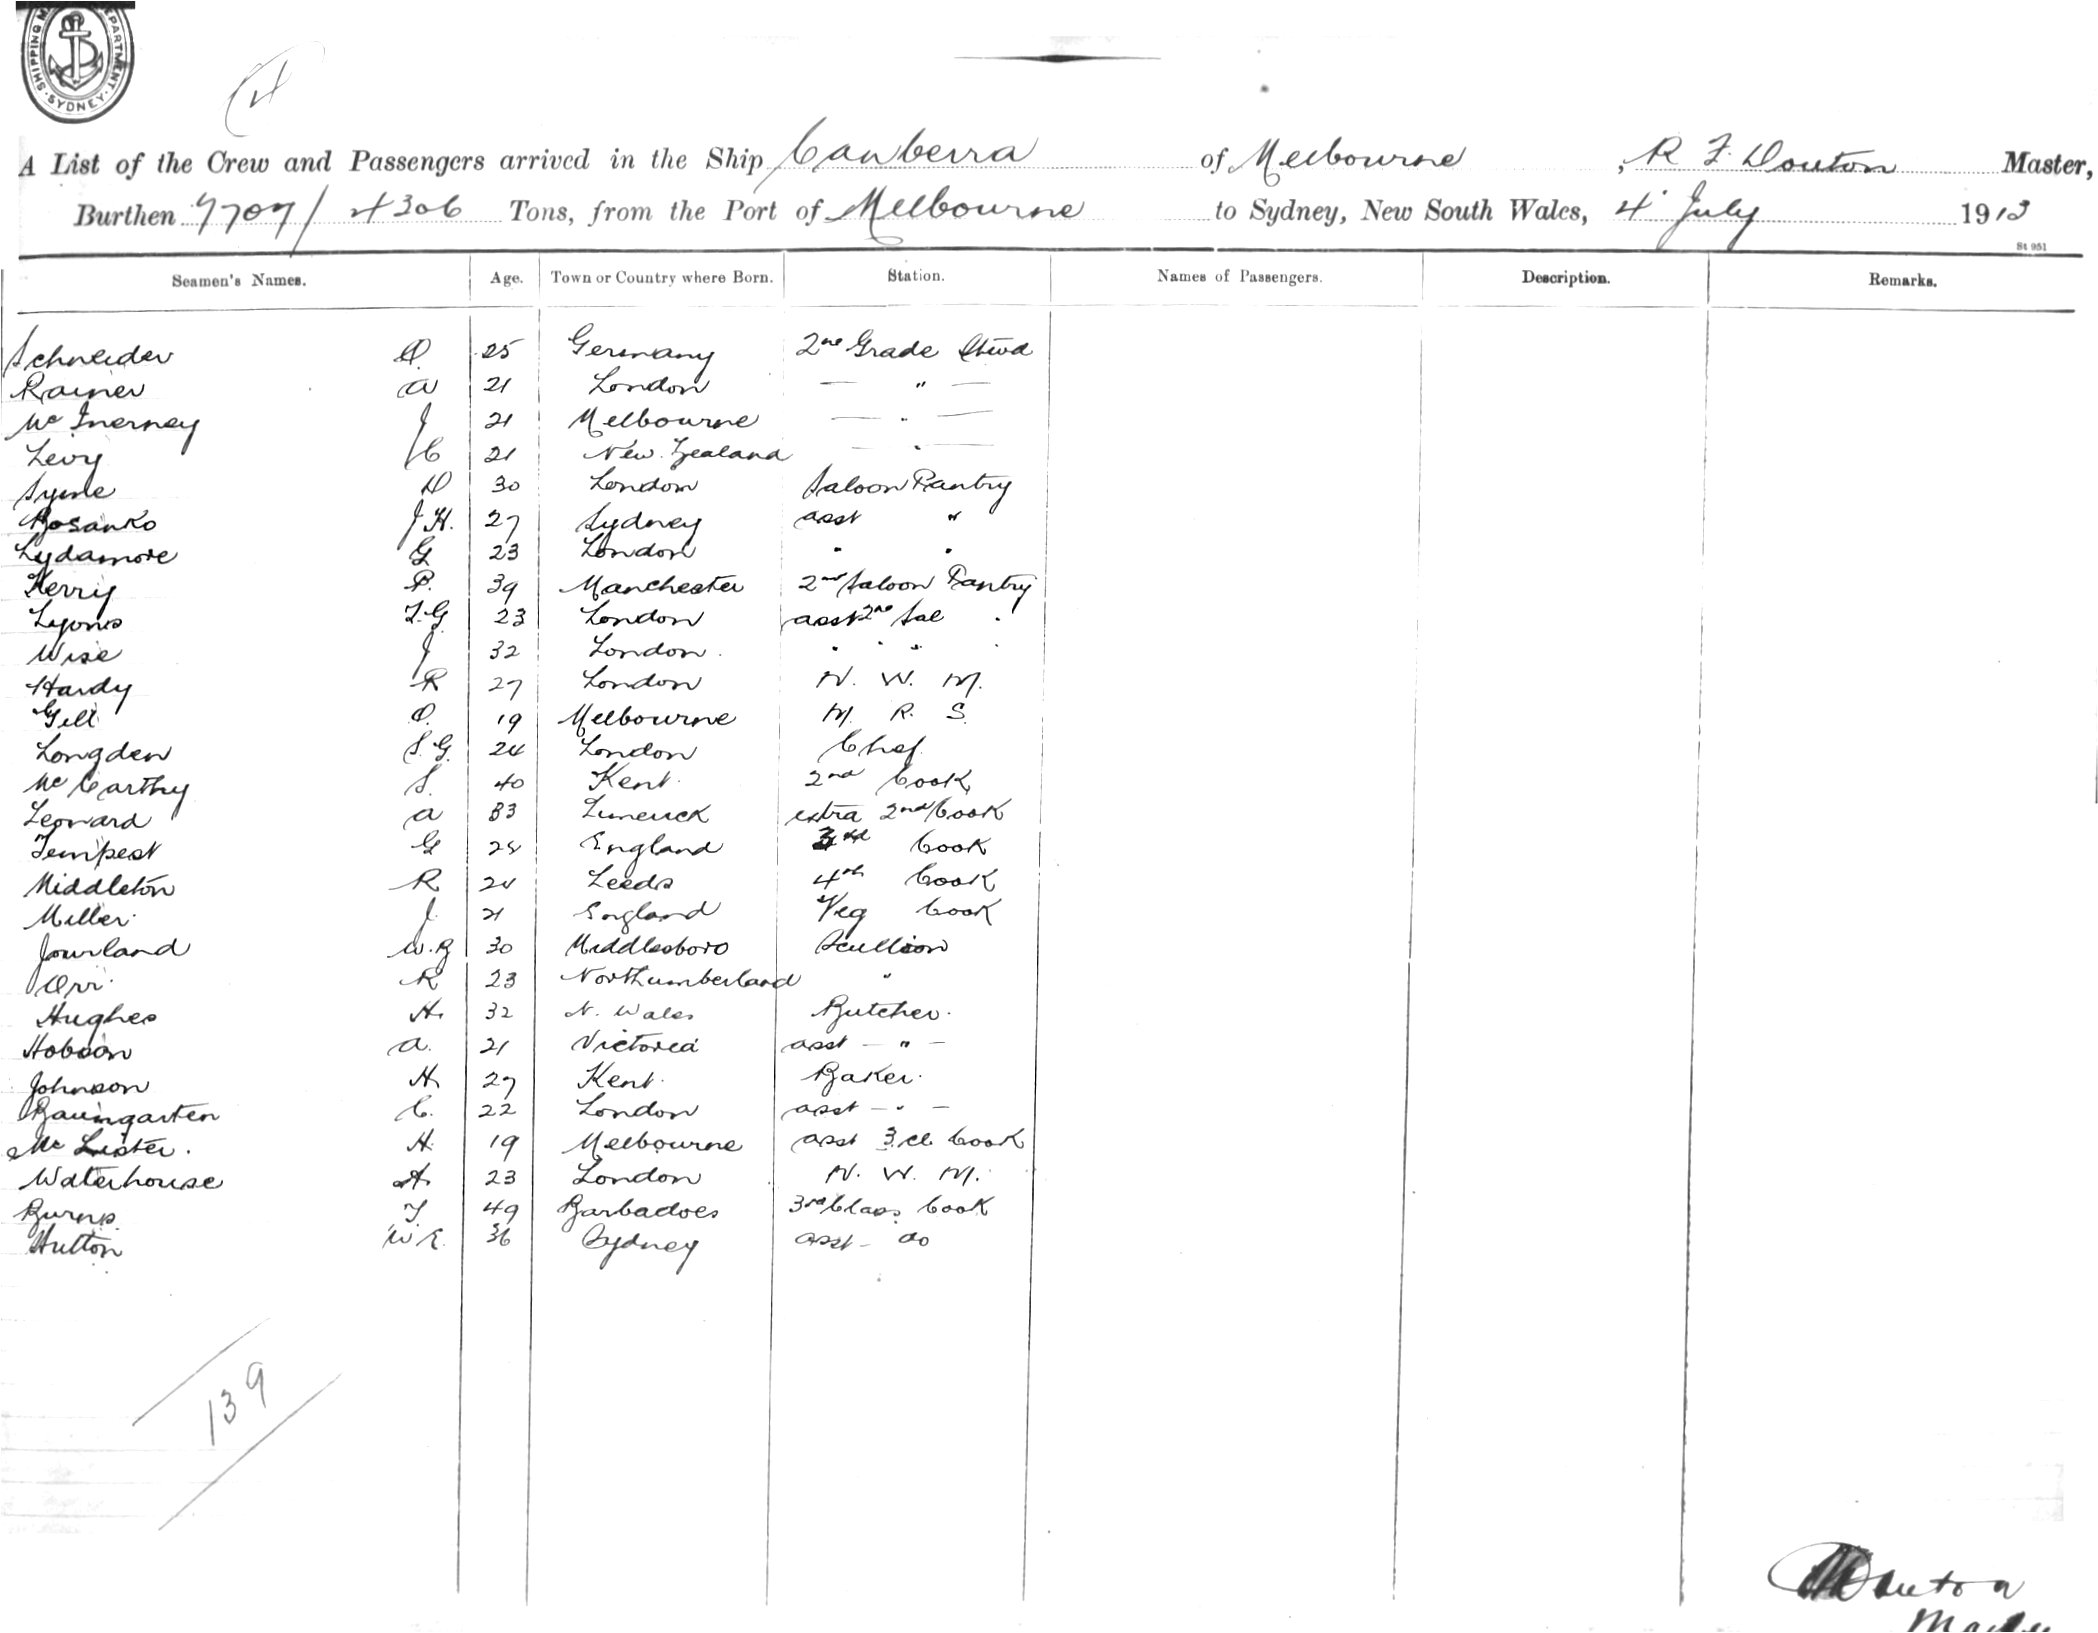 SHIPPING M DEPARTMENT. SYDNEY
4
A List of the Crew and Passengers arrived in the Ship Canberra of Melbourne, R F Douton Master,
Burthen 7707/4306 Tons, from the Port of Melbourne to Sydney, New South Wales, 4 July 1913
St 951
Seamen's Names. Age. Town or Country where Born. Station. Names of Passengers. Description. Remarks.
Schneider O. 25 Germany 2nd Grade Stwd
Rainer A 21 London — " —
Mc Inerney J 21 Melbourne — " —
Levy C 21 New Zealand — " —
Syme D 30 London Saloon Pantry
Bosanko J H. 27 Sydney asst "
Lydamore G 23 London " "
Kerry P. 39 Manchester 2nd Saloon Pantry
Lyons T. G. 23 London asst 2nd Sal "
Wise J 32 London " " "
Hardy R 27 London N. W. M.
Gill O. 19 Melbourne M. R. S.
Longden S. G. 24 London Chef
Mc Carthy S. 40 Kent 2nd Cook
Leonard A 33 Limerick extra 2nd Cook
Tempest G 28 England 3rd Cook
Middleton R 24 Leeds 4th Cook
Miller J. 21 England Veg Cook
Jourland W. B 30 Middlesboro Scullion
Orr R 23 Northumberland "
Hughes H. 32 N. Wales Butcher.
Hobson A. 21 Victoria asst — " —
Johnson H 27 Kent. Baker.
Baumgarten C. 22 London asst — " —
Mc Lister. H. 19 Melbourne asst 3 cl Cook
Waterhouse A. 23 London N. W. M.
Burns T 49 Barbadoes 3rd Class Cook
Hutton W E. 36 Sydney asst — do
139
Douton